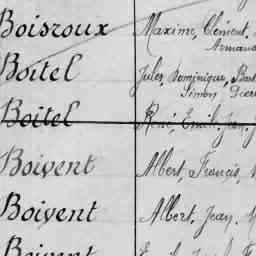 Boisroux Maxime, Clément,
Armand
Boitel Jules, Dominique,
Simon
Boitel René, Emile, Jean,
Boivent Albert, Francis,
Boivent Albert, Jean,
Boivent